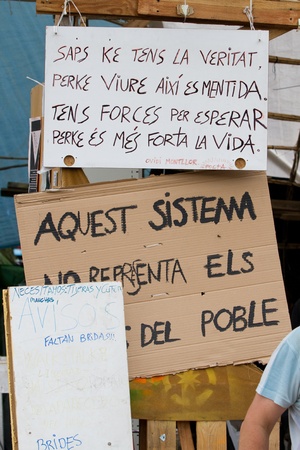 SAPS KE TENS LA VERITAT,
PERKE VIURE AIXÍ ES MENTIDA.
TENS FORCES PER ESPERAR
PERKE ÉS MÉS FORTA LA VIDA.
OVIDI MONTLLOR
AQUEST SISTEMA
NO REPRESENTA ELS
DEL POBLE
AVISOS
FALTAN BRIDAS!!!
BRIDES